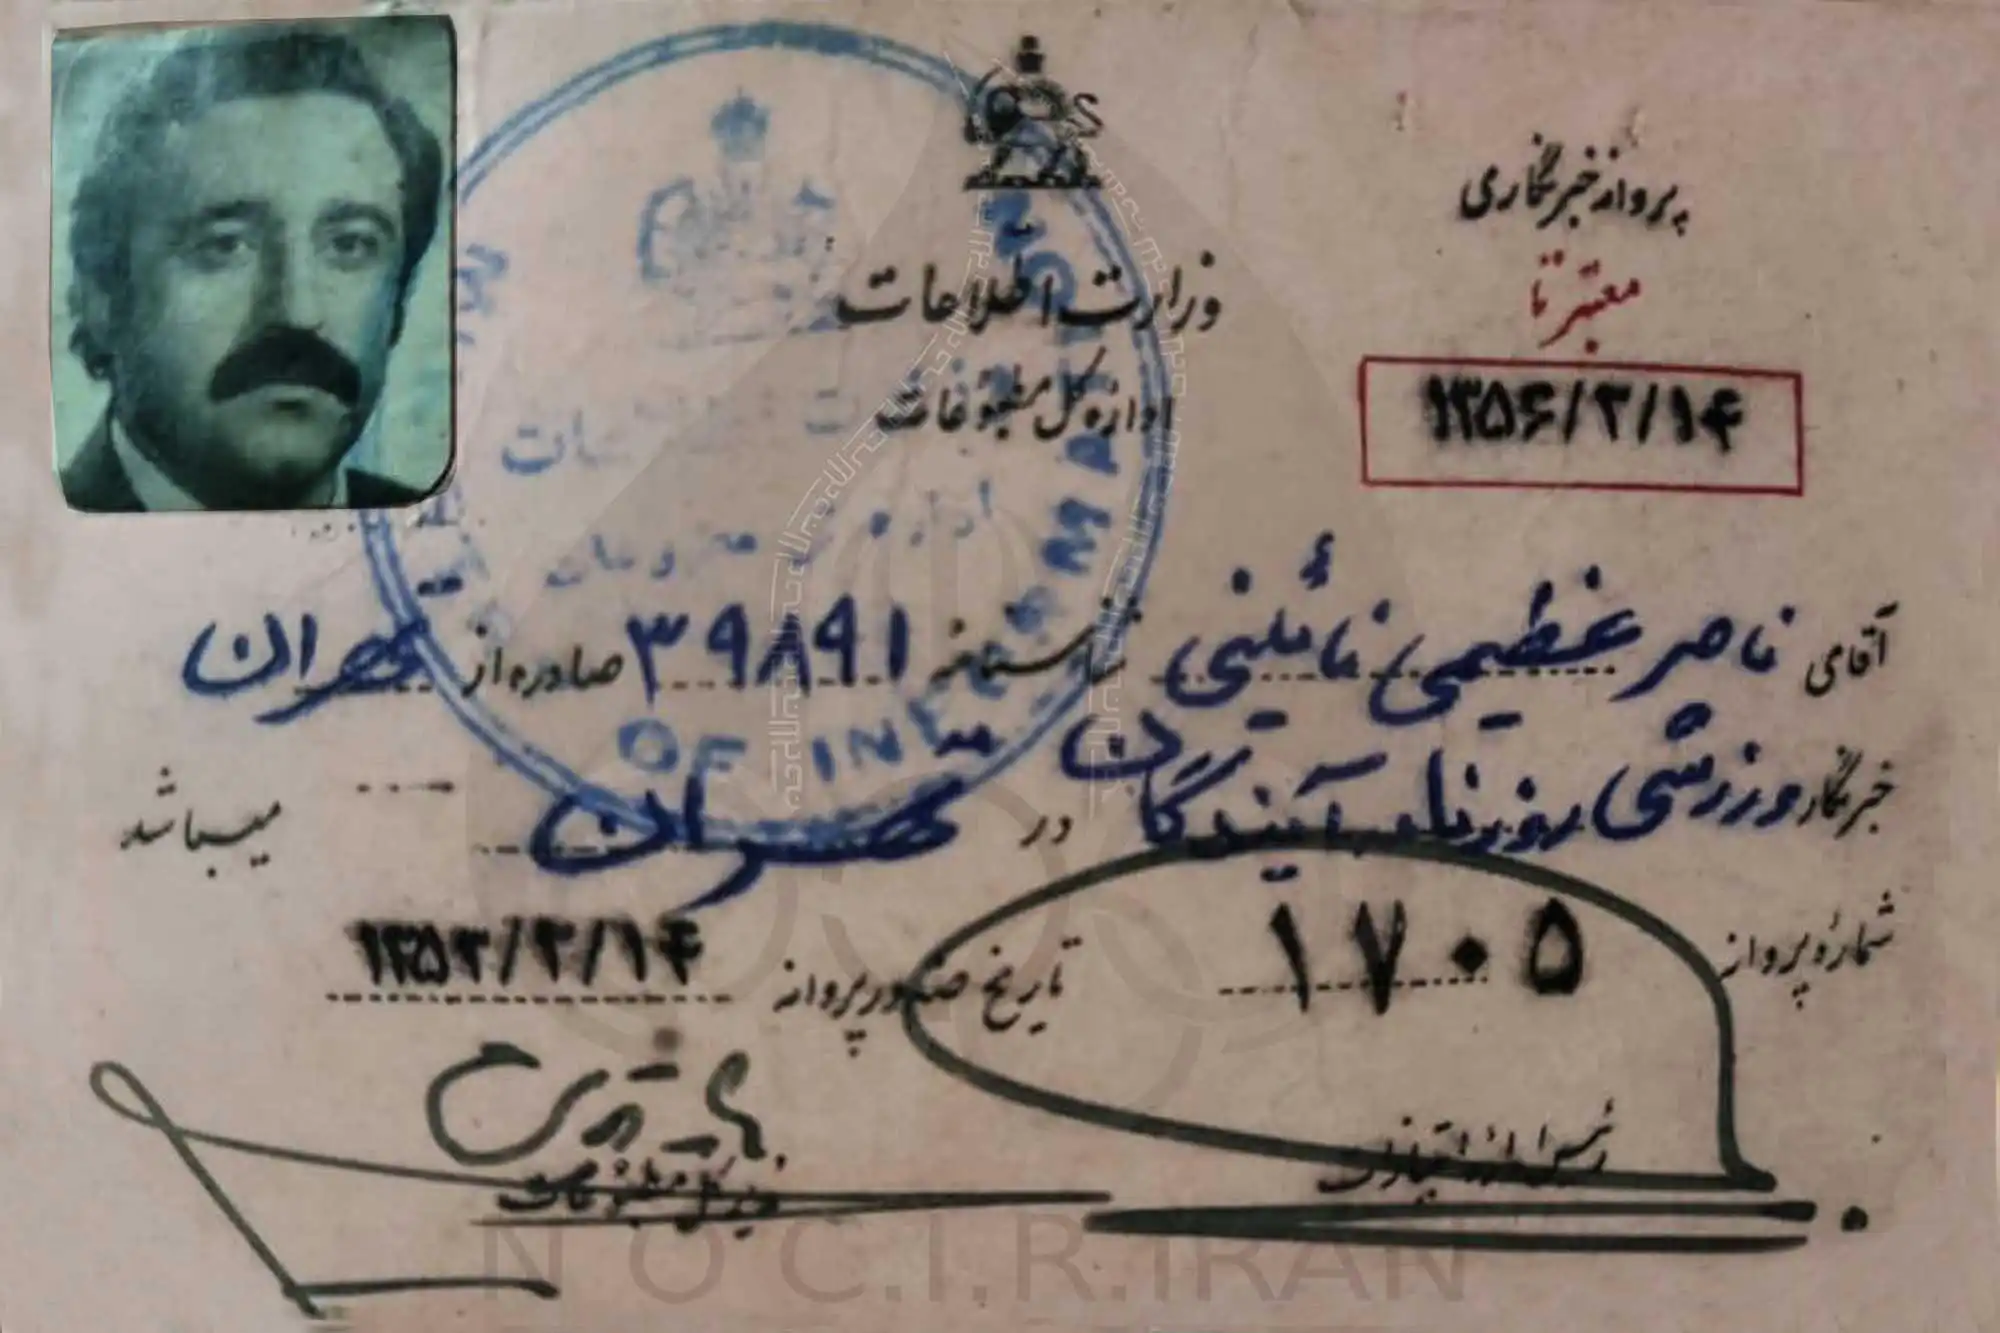 پروانه خبرنگاری
معتبر تا
۱۳۵۶/۳/۱۴
وزارت اطلاعات
اداره کل مطبوعات
آقای ناصر عظیمی نائینی شناسنامه ۳۹۸۹۱ صادره از تهران
خبرنگار ورزشی روزنامه آیندگان در تهران میباشد
شماره پروانه ۱۷۰۵ تاریخ صدور پروانه ۱۳۵۳/۳/۱۴
رئیس اداره امتیازات
مدیر کل مطبوعات
OF INF
N O C.I.R.IRAN